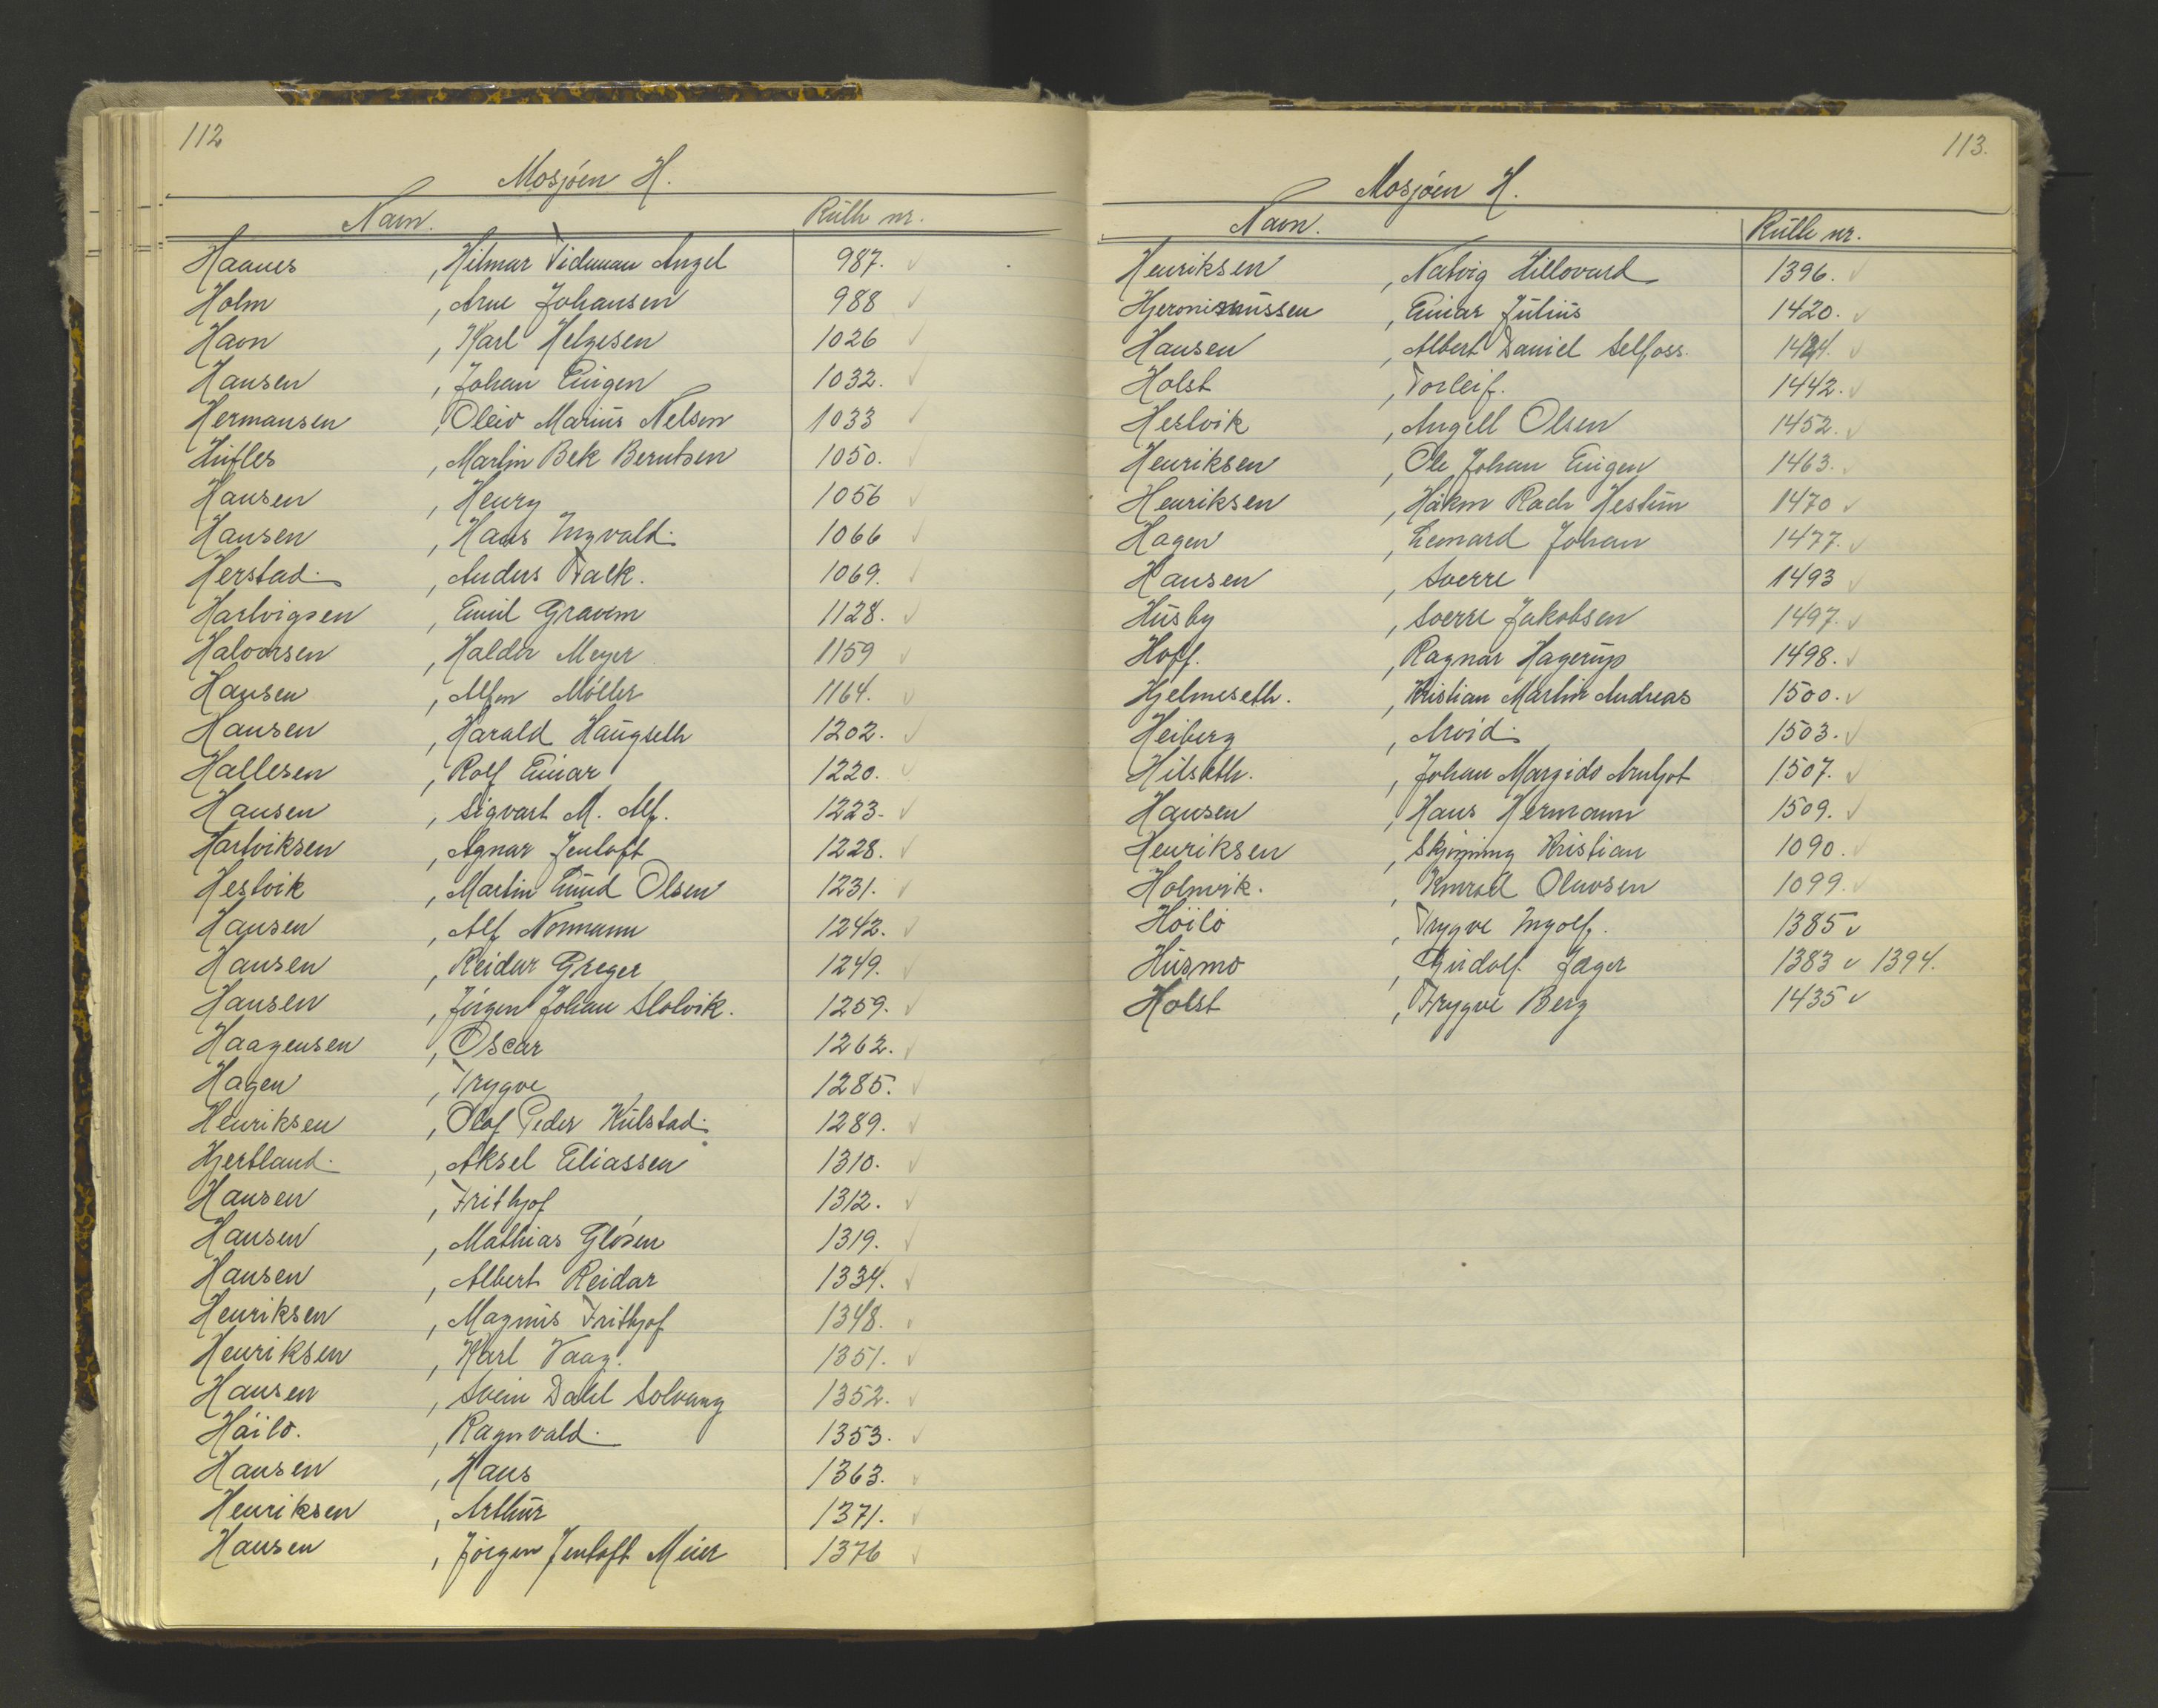 112
Mosjøen H.
Navn. Rulle nr.
Haanes , Hilmar Vidunau Angel 987. ✓
Holm , Arne Johansen 988 ✓
Havn , Karl Helgesen 1026 ✓
Hansen , Johan Eugen 1032. ✓
Hermansen , Oleiv Marius Nelson 1033 ✓
, Martin Bek Berntsen 1050. ✓
Hansen , Henry 1056 ✓
Hansen , Hans Ingvald. 1066 ✓
Herstad. , Anders Falk. 1069. ✓
Hartvigsen , Emil Gravem 1128. ✓
Halvorsen , Haldor Meyer 1159 ✓
Hansen , Alfon Möller 1164. ✓
Hansen , Harald Haugseth 1202. ✓
Hallesen , Rolf Einar 1220. ✓
Hansen , Sigvart M. Alf. 1223. ✓
Hartviksen , Agnar Jentoft 1228. ✓
Hestvik , Martin Emid Olsen 1231. ✓
Hansen , Alf Normann 1242. ✓
Hansen , Reidar Greger 1249. ✓
Hansen , Jörgen Johan Slotvik. 1259. ✓
Haagensen , Oscar 1262. ✓
Hagen , Trygve 1285. ✓
Henriksen , Olaf Peder Kulstad. 1289. ✓
Hjertland. , Aksel Eliassen 1310. ✓
Hansen , Frithjof 1312. ✓
Hansen , Mathias Glösen 1319. ✓
Hansen , Albert Reidar 1334. ✓
Henriksen , Magnus Frithjof 1348. ✓
Henriksen , Karl Vaag. 1351. ✓
Hansen , Svein Dahl Solvang 1352. ✓
Höilo. , Ragnvald. 1353. ✓
Hansen , Hans 1363. ✓
Henriksen , Arthur 1371. ✓
Hansen , Jörgen Jentoft Meier 1376 ✓
113.
Mosjøen H.
Navn. Rulle nr.
Henriksen , Natvig Hillovard 1396. ✓
Hjeronimussen , Einar Julius 1420. ✓
Hansen , Albert Daniel Selfoss. 1424. ✓
Holst , Torleif. 1442. ✓
Hestvik , Angell Olsen 1452. ✓
Henriksen , Ole Johan Eugen 1463. ✓
Henriksen , Håkon Rach Hestun 1470 ✓
Hagen , Lennard Johan 1477. ✓
Hansen , Sverre 1493 ✓
Husby , Sverre Jakobsen 1497. ✓
Hoff. , Ragnar Hagerup 1498. ✓
Hjelmeseth. , Kristian Martin Andreas 1500. ✓
Heiberg , Arvid. 1503. ✓
Hilseth. , Johan Margido Arntfot 1507. ✓
Hansen , Hans Hermann 1509. ✓
Henriksen , Skjönning Kristian 1090. ✓
Holmvik. , Konrad Olavsen 1099. ✓
Höilo , Trygve Ingolf. 1385 ✓
Husmo , Gudolf Jæger 1383 ✓ 1394.
Holst , Trygve Berg 1435 ✓